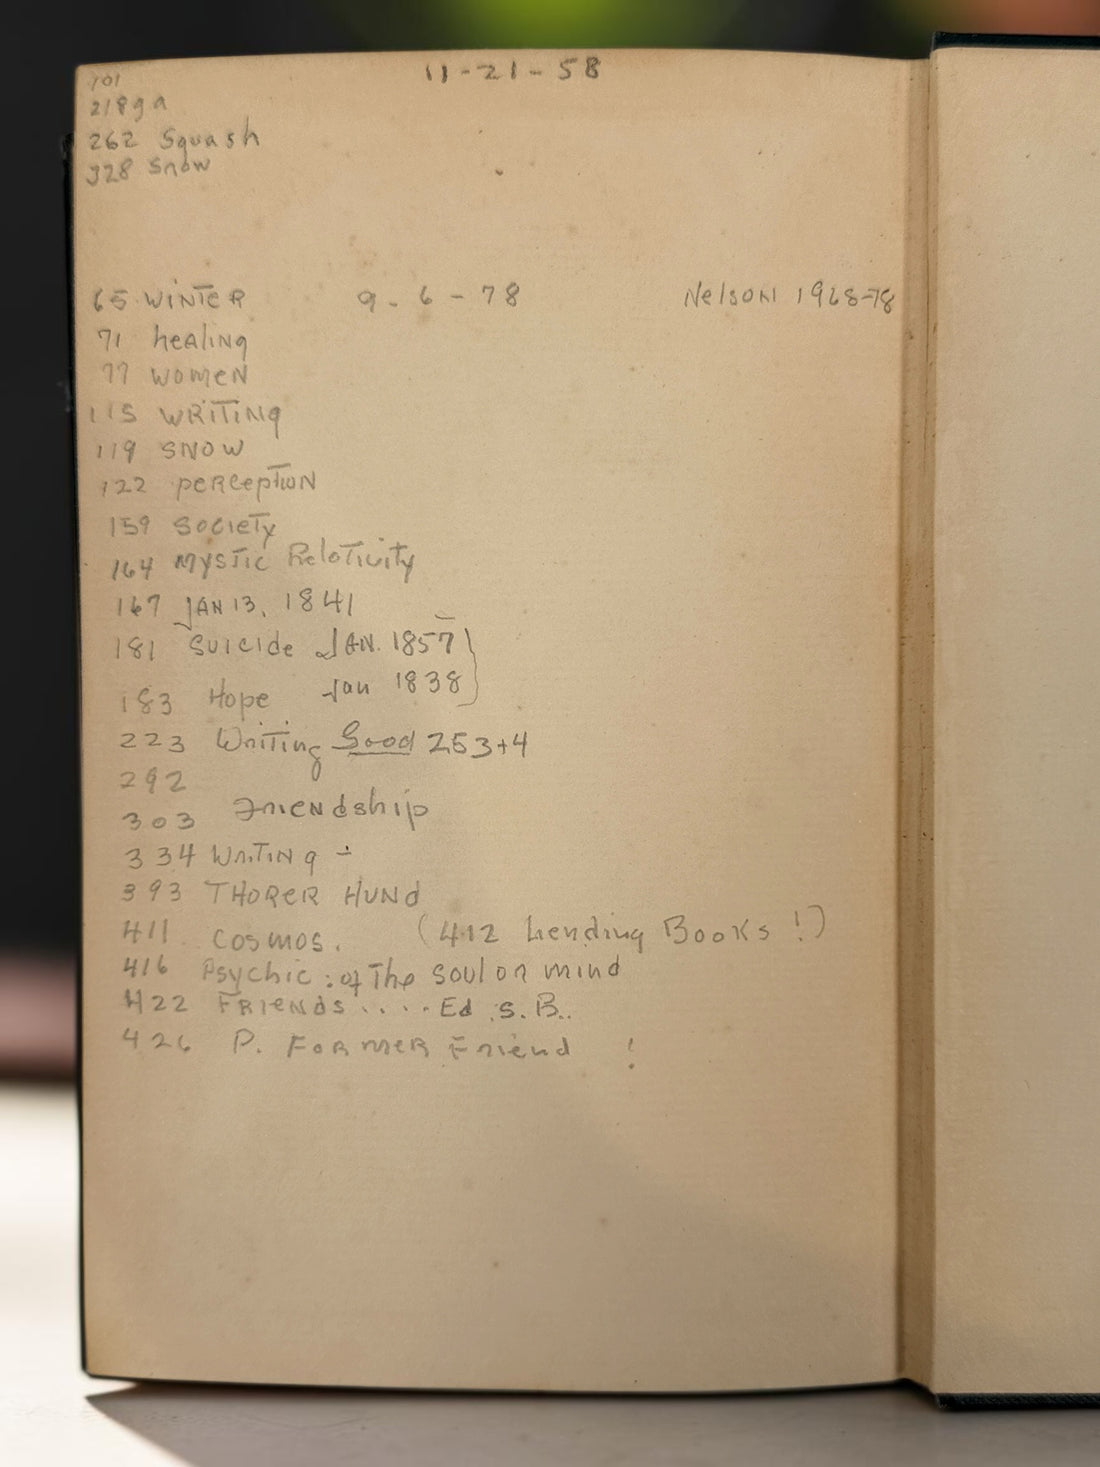 11-21-58
101
218ga
262 Squash
328 Snow
65 WINTER 9-6-78 Nelson 1968-78
71 healing
77 women
115 WRITING
119 SNOW
122 perception
159 Society
164 Mystic Relativity
167 JAN 13, 1841
181 Suicide JAN. 1857
183 Hope Jan 1838
223 Writing Good 253+4
292
303 Friendship
334 Writing -
393 THORER HUNd
411 Cosmos. (412 Lending Books!)
416 Psychic: of The soul or mind
422 Friends.... Ed S.B..
426 P. Former Friend !